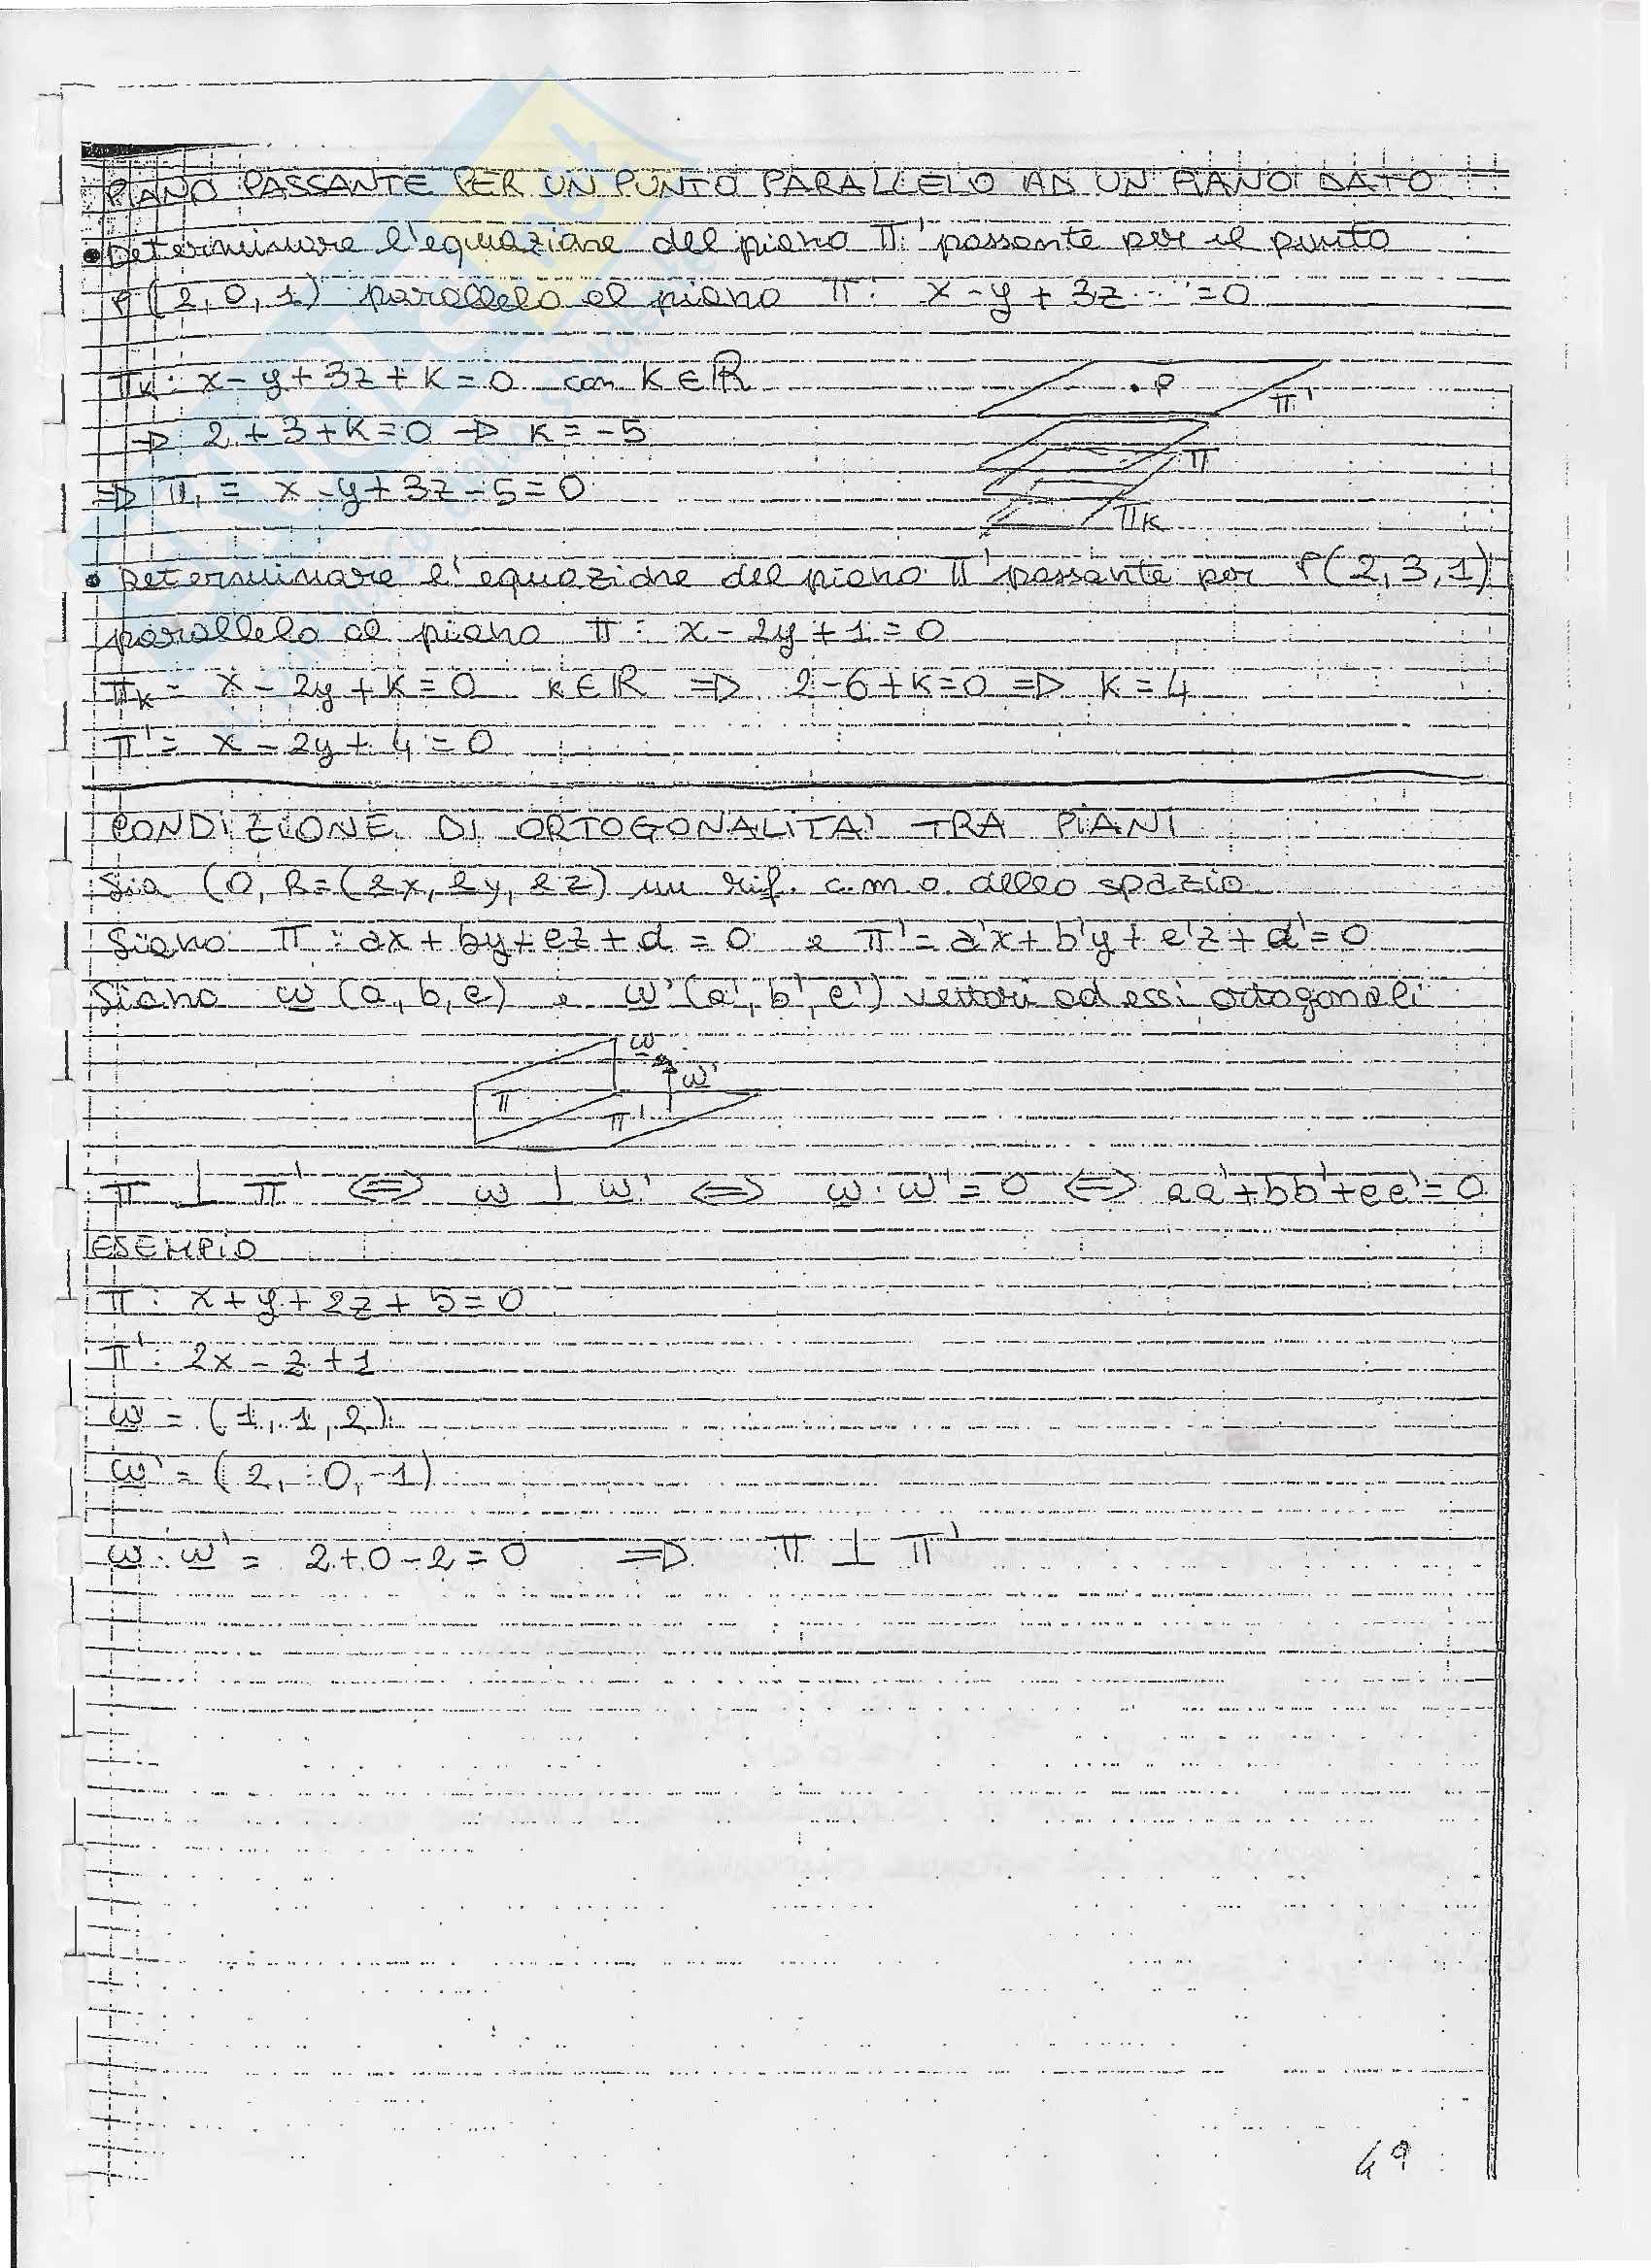 PIANO PASSANTE PER UN PUNTO PARALLELO AD UN PIANO DATO
• Determinare l'equazione del piano π' passante per il punto
P(2,0,1) parallelo al piano π: x-y+3z =0
πk: x-y+3z+k=0 con k∈ℝ
→ 2+3+k=0 → k=-5
⇒ π, = x-y+3z-5=0
•P
π'
π
πk
• Determinare l'equazione del piano π' passante per P(2,3,1)
parallelo al piano π: x-2y+1=0
πk = x-2y+k=0 k∈ℝ ⇒ 2-6+k=0 ⇒ k=4
π' = x-2y+4=0
CONDIZIONE DI ORTOGONALITA' TRA PIANI
Sia (O, B=(ex, ey, ez) un rif. c.m.o. dello spazio
Siano π: ax+by+cz+d=0 e π' = a'x+b'y+c'z+d'=0
Siano w(a,b,c) e w'(a',b',c') vettori ad essi ortogonali
w
w'
π
π'
π ⊥ π' ⇔ w ⊥ w' ⇔ w·w'=0 ⇔ aa'+bb'+cc'=0
ESEMPIO
π: x+y+2z+5=0
π': 2x-z+1
w = (1,1,2)
w' = (2,0,-1)
w·w' = 2+0-2=0 ⇒ π ⊥ π'
49